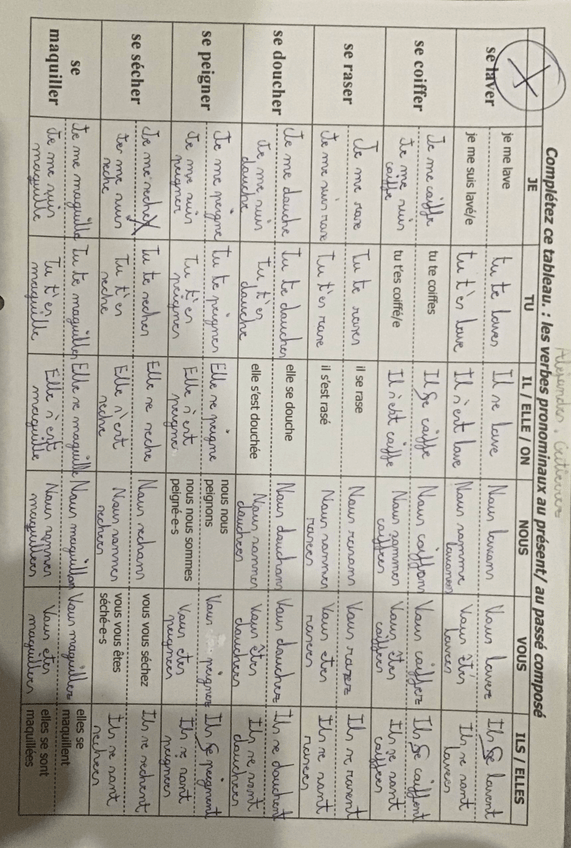 Alexander. Gutierrez
Complétez ce tableau. : les verbes pronominaux au présent/ au passé composé
JE TU IL / ELLE / ON NOUS VOUS ILS / ELLES
se laver
je me lave tu te laves Il se lave Nous lavons Vous lavez Ils se lavent
je me suis lavé/e tu t'es lave Il s'est lave Nous sommes Vous êtes laves Ils se sont laves
se coiffer
Je me coiffe tu te coiffes Il se coiffe Nous coiffons Vous coiffez Ils se coiffent
Je me suis coiffe tu t'es coiffé/e Il s'est coiffe Nous sommes coiffes Vous êtes coiffes Ils se sont coiffes
se raser
Je me rase Tu te rases il se rase Nous rasons Vous rasez Ils se rasent
Je me suis rase Tu t'es rase il s'est rasé Nous sommes rases Vous etes rases Ils se sont rases
se doucher
Je me douche Tu te douches elle se douche Nous douchons Vous douchez Ils se douchent
Je me suis douche Tu t'es douche elle s'est douchée Nous sommes douches Vous êtes douches Ils se sont douches
se peigner
Je me peigne Tu te peignes Elle se peigne nous nous peignons Vous peignez Ils se peignent
Je me suis peigner Tu t'es peignes Elle s'est peigne nous nous sommes peigné-e-s Vous etes peignees Ils se sont peignees
se sécher
Je me seche Tu te seches Elle se seche Nous sechons vous vous séchez Ils se sechent
Je me suis seche Tu t'es seche Elle s'est seche Nous sommes seches vous vous êtes séché-e-s Ils se sont seches
se maquiller
Je me maquille Tu te maquilles Elle se maquille Nous maquillons Vous maquillez elles se maquillent
Je me suis maquille Tu t'es maquille Elle s'est maquille Nous sommes maquillees Vous etes maquillees elles se sont maquillées